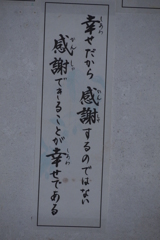 幸せだから感謝するのではない
感謝できることが幸せである